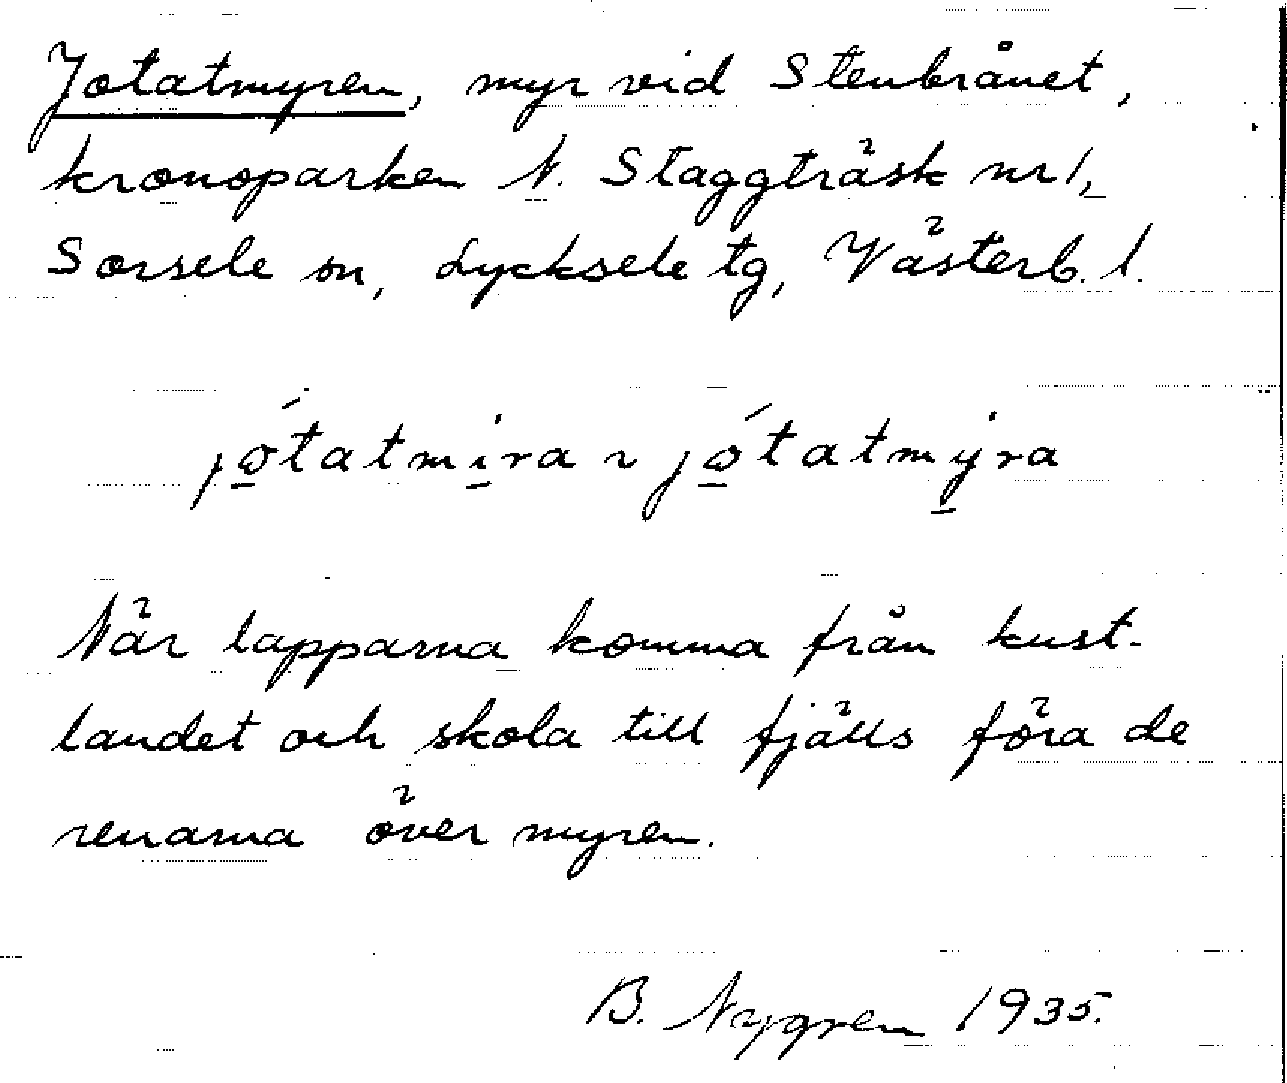 Jotatmyren, myr vid Stenbrånet,
kronoparken N. Staggträsk nr 1,
Sorsele sn, Lycksele tg, Västerb. l.
jo̲´tatmi̲ra ~ jo̲´tatmy̲ra
När lapparna komma från kust-
landet och skola till fjälls föra de
renarna över myren.
B. Nygren 1935.